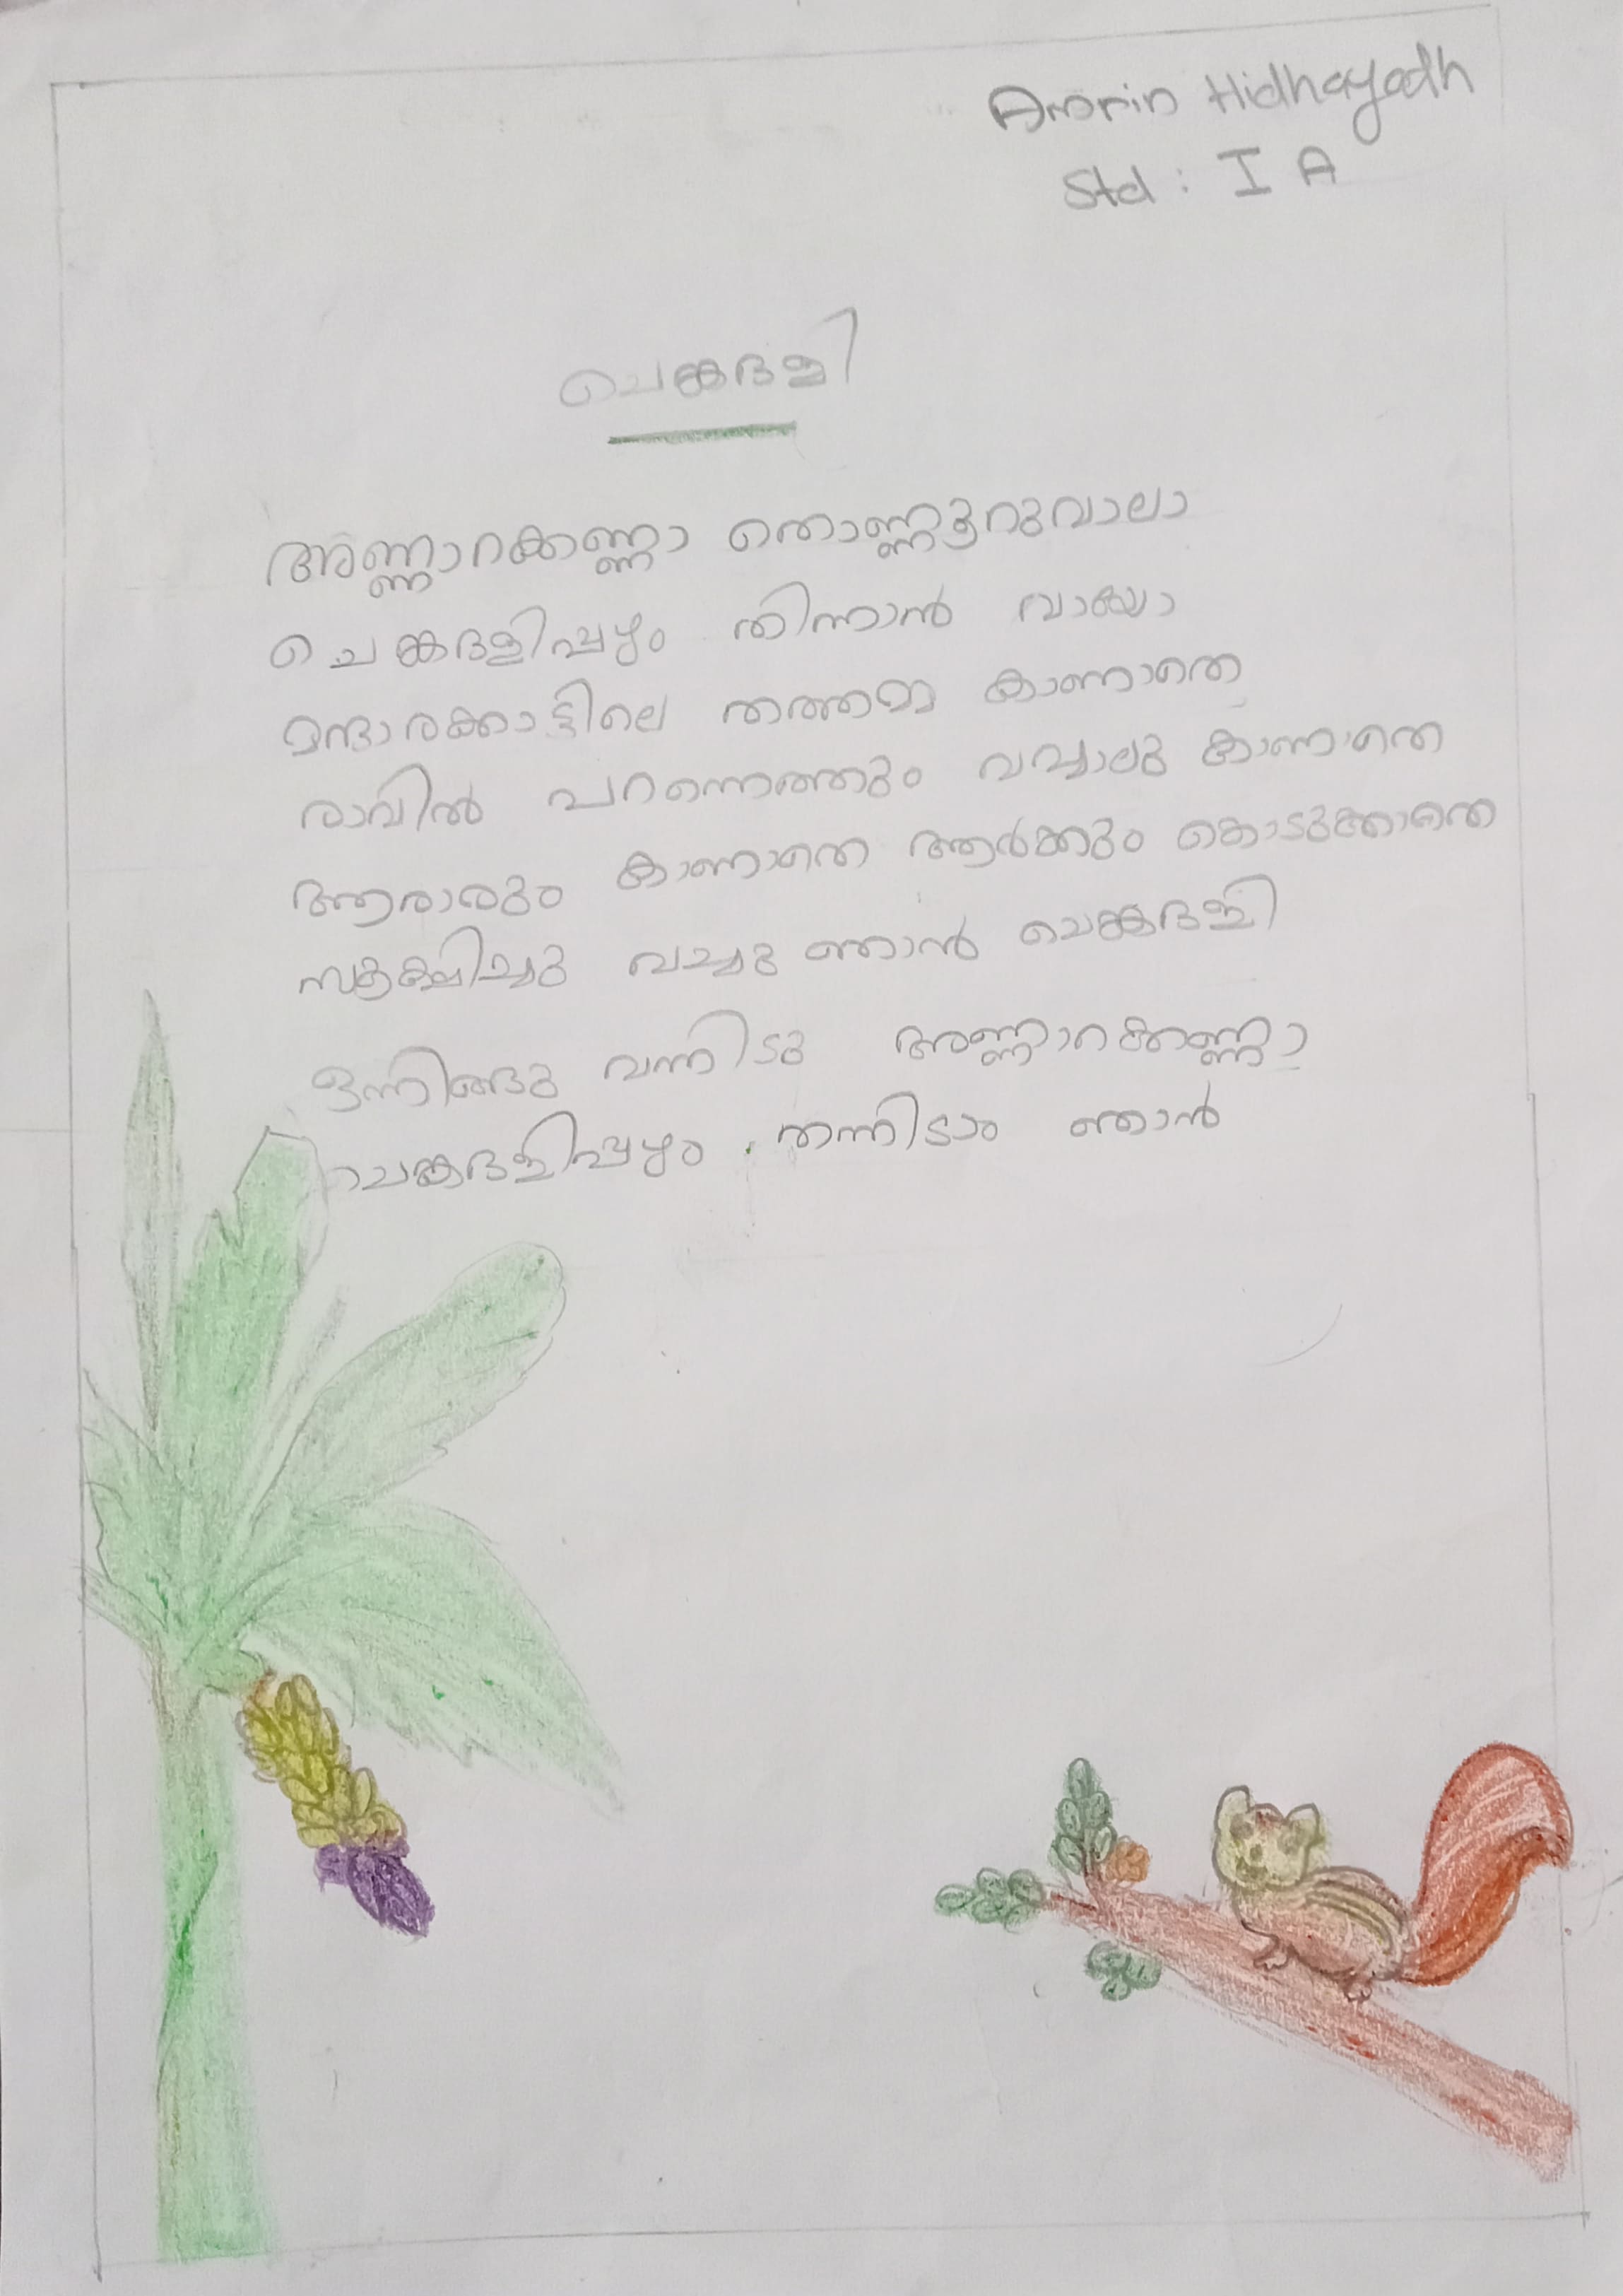 Amrin Hidhayadh
Std : I A
ചെങ്കദളി
അണ്ണാറക്കണ്ണാ തൊണ്ണൂറുവാലാ
ചെങ്കദളിപ്പഴം തിന്നാൻ വായോ
മന്ദാരക്കാട്ടിലെ തത്തമ്മ കാണാതെ
രാവിൽ പറന്നെത്തും വവ്വാലു കാണാതെ
ആരാരും കാണാതെ ആർക്കും കൊടുക്കാതെ
സൂക്ഷിച്ചു വച്ചു ഞാൻ ചെങ്കദളി
ഒന്നിങ്ങു വന്നിടു അണ്ണാറക്കണ്ണാ
ചെങ്കദളിപ്പഴം തന്നിടാം ഞാൻ